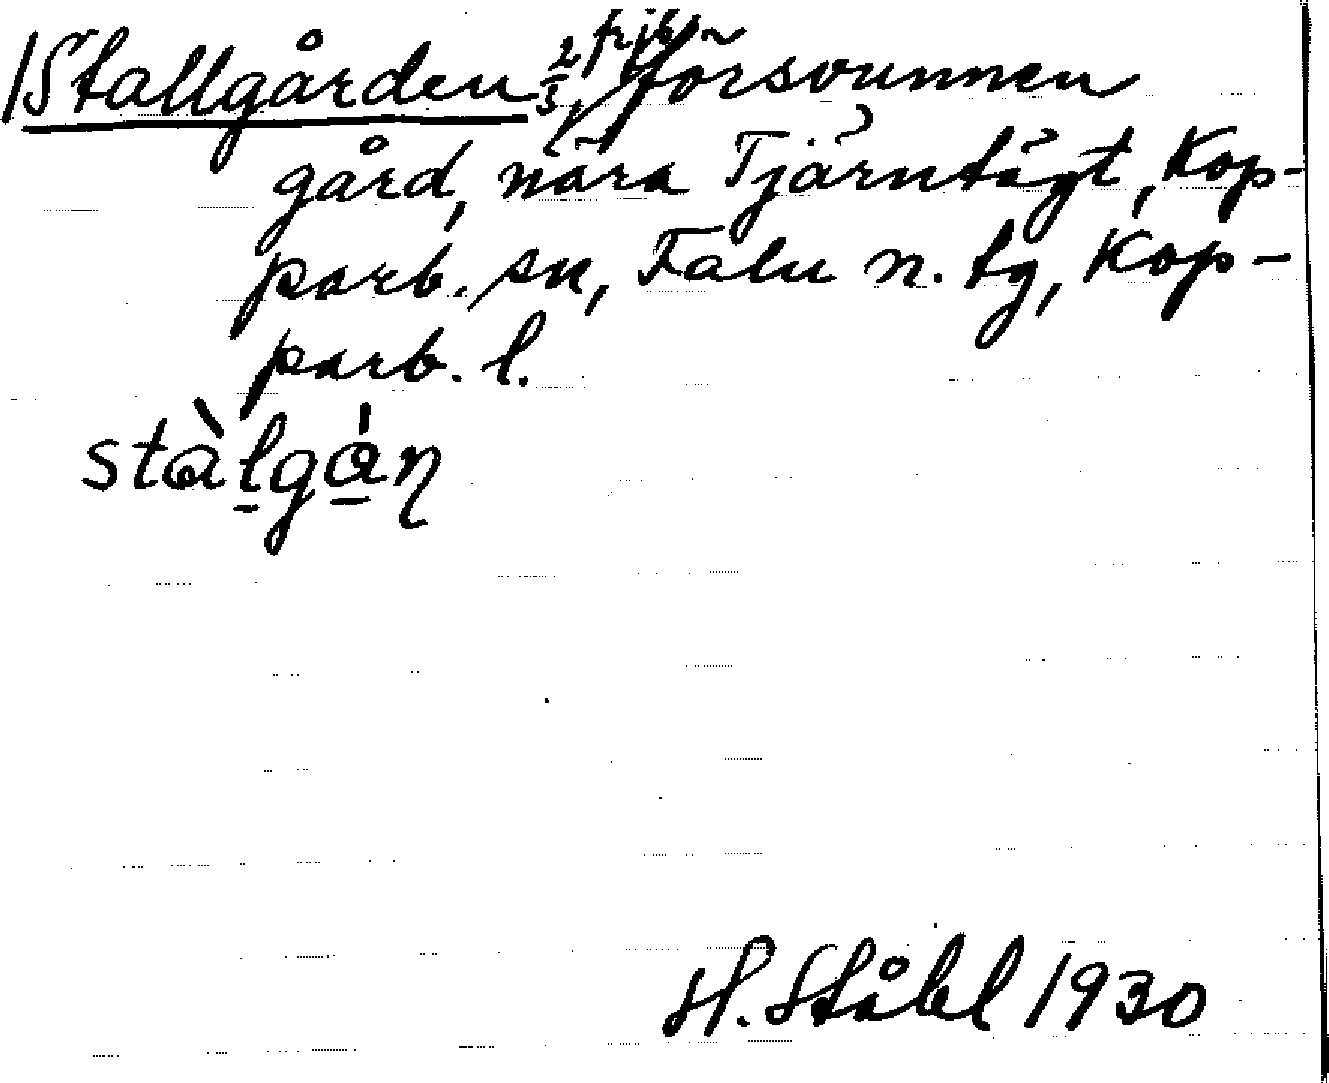 Stallgården försvunnen
gård, nära Tjärntägt, Kop-
parb. sn, Falu n. tg, Kop-
parb. l.
stàlgån
H. Ståhl 1930